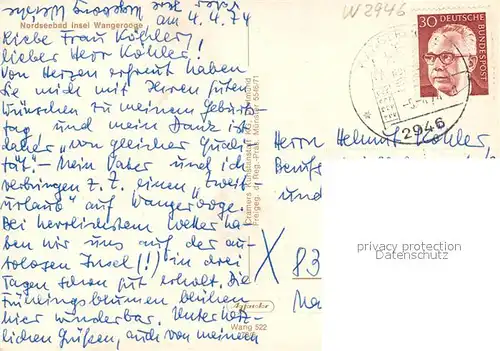 W 2946
Nordseebad Insel Wangerooge
am 4.4.74
Liebe Frau Köhler,
lieber Herr Köhler!
Von Herzen erfreut haben
Sie mich mit Ihren guten
Wünschen zu meinem Geburts-
tag und mein Dank ist
daher „von gleicher Quali-
tät". – Mein Vater und ich
verbringen z. Z. einen „Zweit-
urlaub" auf Wangerooge.
Bei herrlichstem Wetter ha-
ben wir uns auf der au-
tolosen Insel (!!) in drei
Tagen schon gut erholt. Die
Frühlingsblumen blühen
hier wunderbar. Unter herz-
lichen Grüßen, auch von meinem
Cramers Kunstanstalt KG, Dortmund
Freigeg. d. Reg.-Präs. Münster 5546/71
Wang 522
30
DEUTSCHE
BUNDESPOST
2946
Herrn Helmut Köhler
Berufs
und
X 83
privacy protection
Datenschutz